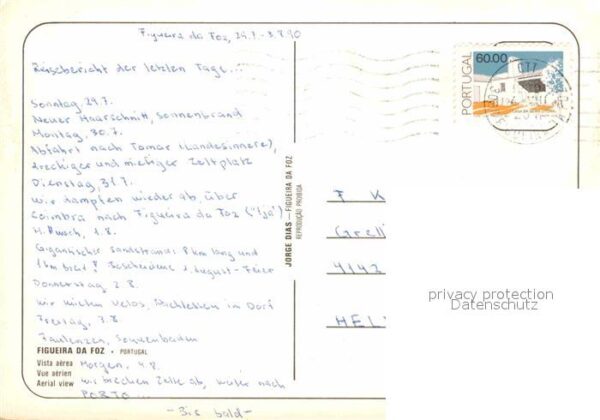 Figueira da Foz, 29.7.-3.8.90
Reisebericht der letzten Tage...
Sonntag 29.7.
Neuer Haarschnitt, Sonnenbrand
Montag 30.7.
Abfahrt nach Tomar (Landesinnere),
dreckiger und miefiger Zeltplatz
Dienstag, 31.7.
wir dampfen wieder ab, über
Coimbra nach Figueira da Foz ("Tja")
1.8.
Gigantischer Sandstrand: 8 km lang und
1 km breit! Bescheidene 1. August-Feier
Donnerstag 2.8.
wir mieten Velos, Nachtleben im Dorf
Freitag, 3.8.
Faulenzen, Sonnenbaden
FIGUEIRA DA FOZ • PORTUGAL
Vista aérea
Vue aérien
Aerial view
Morgen, 4.8.
wir brechen Zelte ab, weiter nach
PORTO...
-Bis bald-
JORGE DIAS — FIGUEIRA DA FOZ
REPRODUÇÃO PROIBIDA
60.00
PORTUGAL
CTT
F K
Grell
4142
HEL
privacy protection
Datenschutz